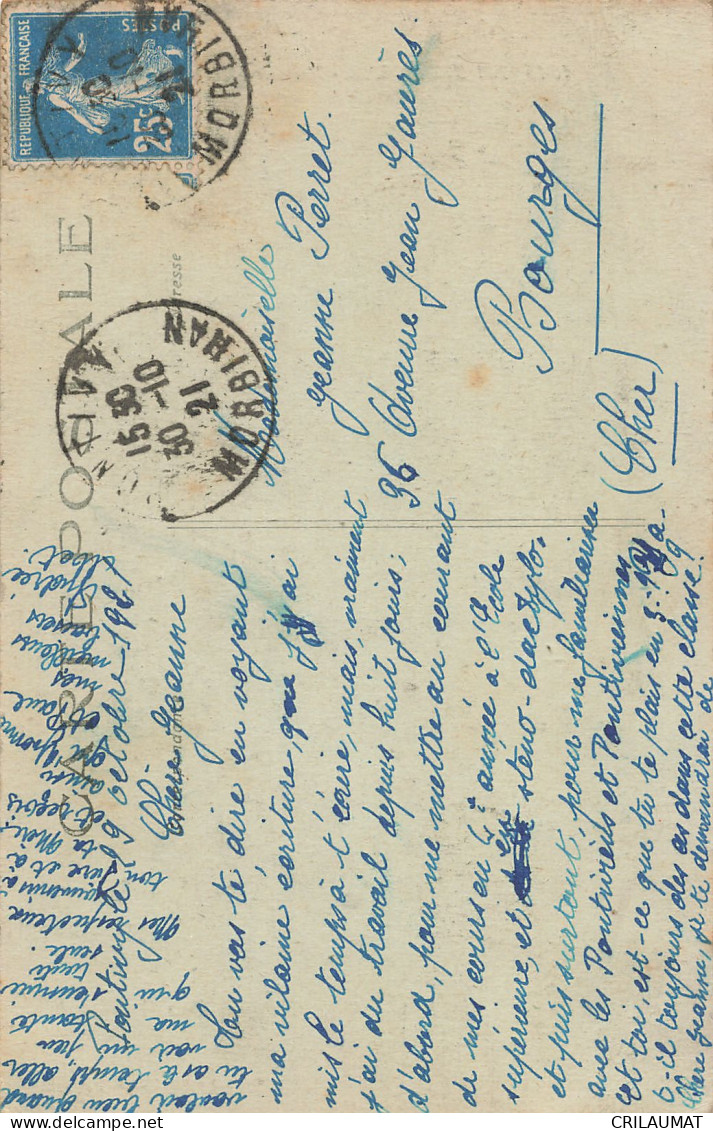 REPUBLIQUE FRANÇAISE
POSTES
25c
MORBIHAN
CARTE POSTALE
15 30
30 -10
21
MORBIHAN
Mademoiselle
Jeanne Perret.
36 Avenue Jean Jaurès.
Bourges
(Cher)
Pontivy le 29 Octobre 1921
Chère Jeanne
Tu vas te dire en voyant
ma vilaine écriture, que j'ai
mis le temps à t'écrire, mais, vraiment
j'ai du travail depuis huit jours;
d'abord, pour me mettre au courant
de mes cours en 4e année à l'Ecole
supérieure, et en sténo-dactylo.
et puis surtout, pour me familiariser
avec les Pontiviens et Pontiviennes
et toi, est-ce que tu te plais en 3e. Y a-
t-il toujours des as dans cette classe?
Chère Jeanne, je te demandrai de
vouloir bien quand
tu as le temps, aller
voir un peu
ma tante
qui s'ennui
toute
seule.
Mes respectueux
souvenirs à
ton père et à
ta mère,
et reçois
aussi
mes meilleurs
baisers
Andrée